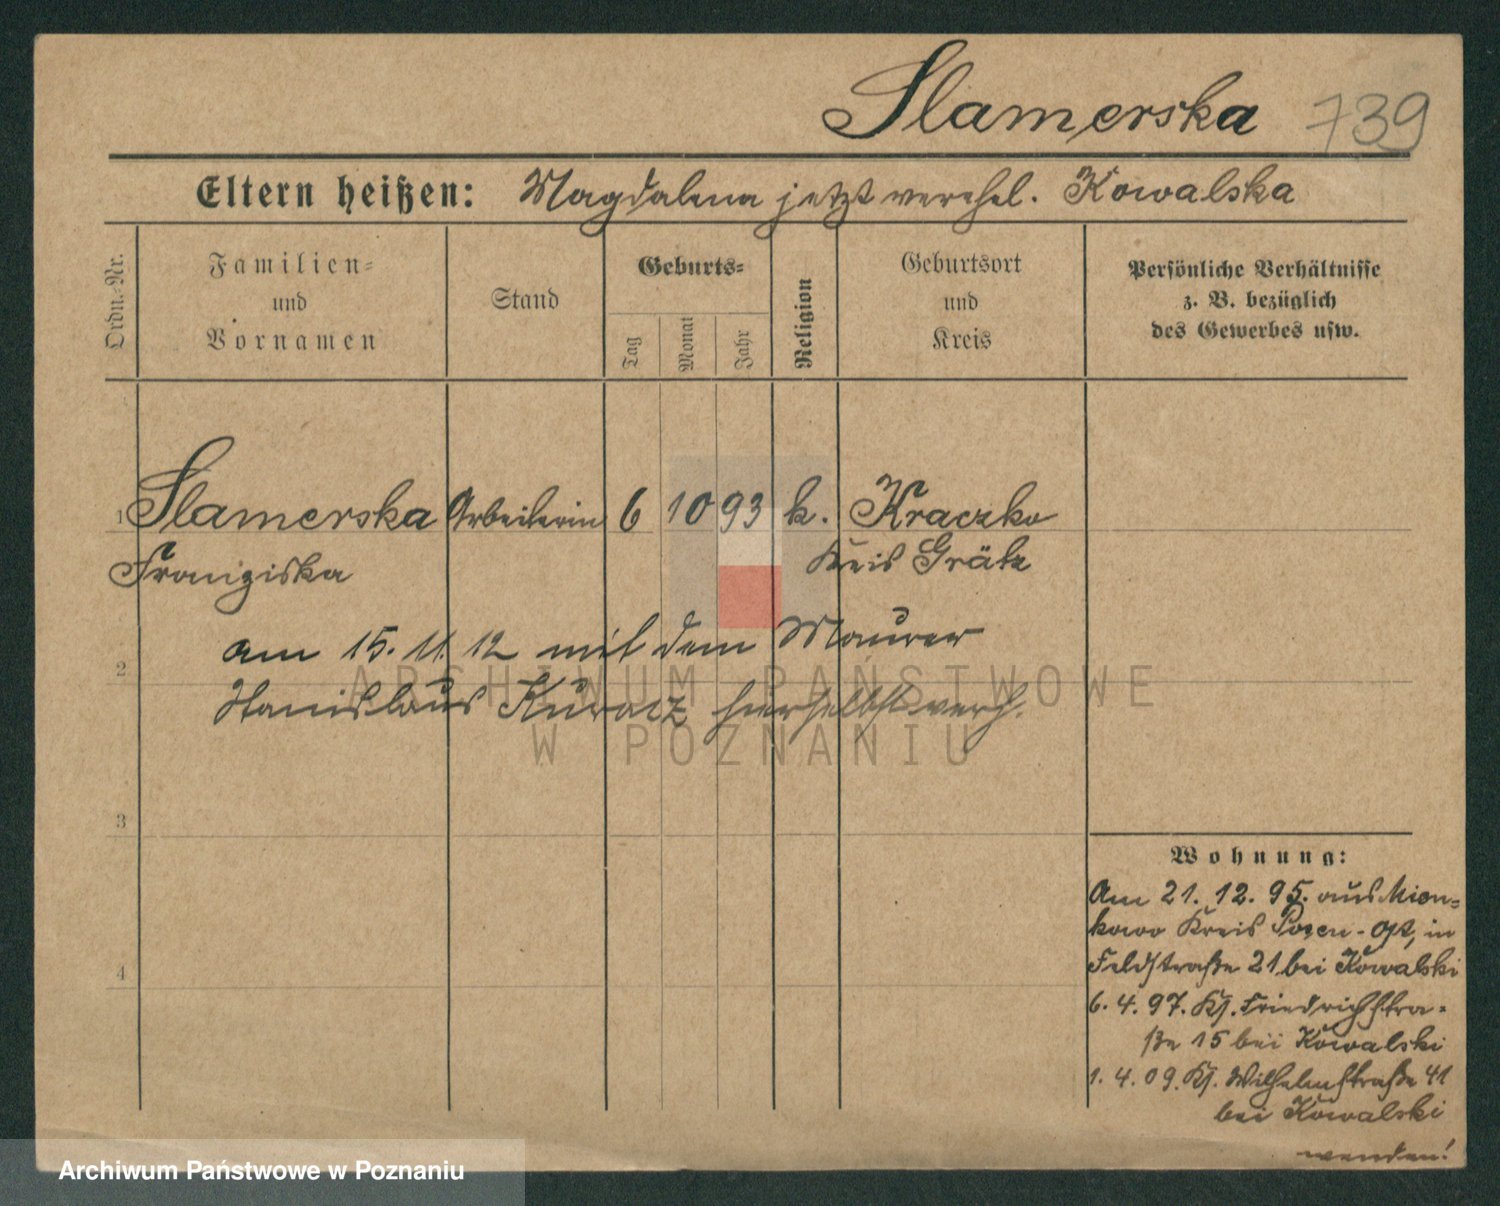 Slamerska 739
Eltern heißen: Magdalena jetzt verehel. Kowalska
Ordn.-Nr.
Familien-
und
Vornamen
Stand
Geburts-
Tag
Monat
Jahr
Religion
Geburtsort
und
Kreis
Persönliche Verhältnisse
z. B. bezüglich
des Gewerbes usw.
1 Slamerska Arbeiterin 6 10 93 k. Kraczko
Franziska Kreis Grätz
am 15. 11. 12 mit dem Maurer
2
Stanislaus hierselbst verh.
ARCHIWUM PAŃSTWOWE
W POZNANIU
3
4
Wohnung:
Am 21. 12. 95. aus Mion-
kowo Kreis Posen-Ost, in
Feldstraße 21 bei Kowalski
6. 4. 97. Kj. Friedrichstra-
ße 15 bei Kowalski
1. 4. 09. Kj. Wilhelmstraße 41
bei Kowalski
wenden!
Archiwum Państwowe w Poznaniu